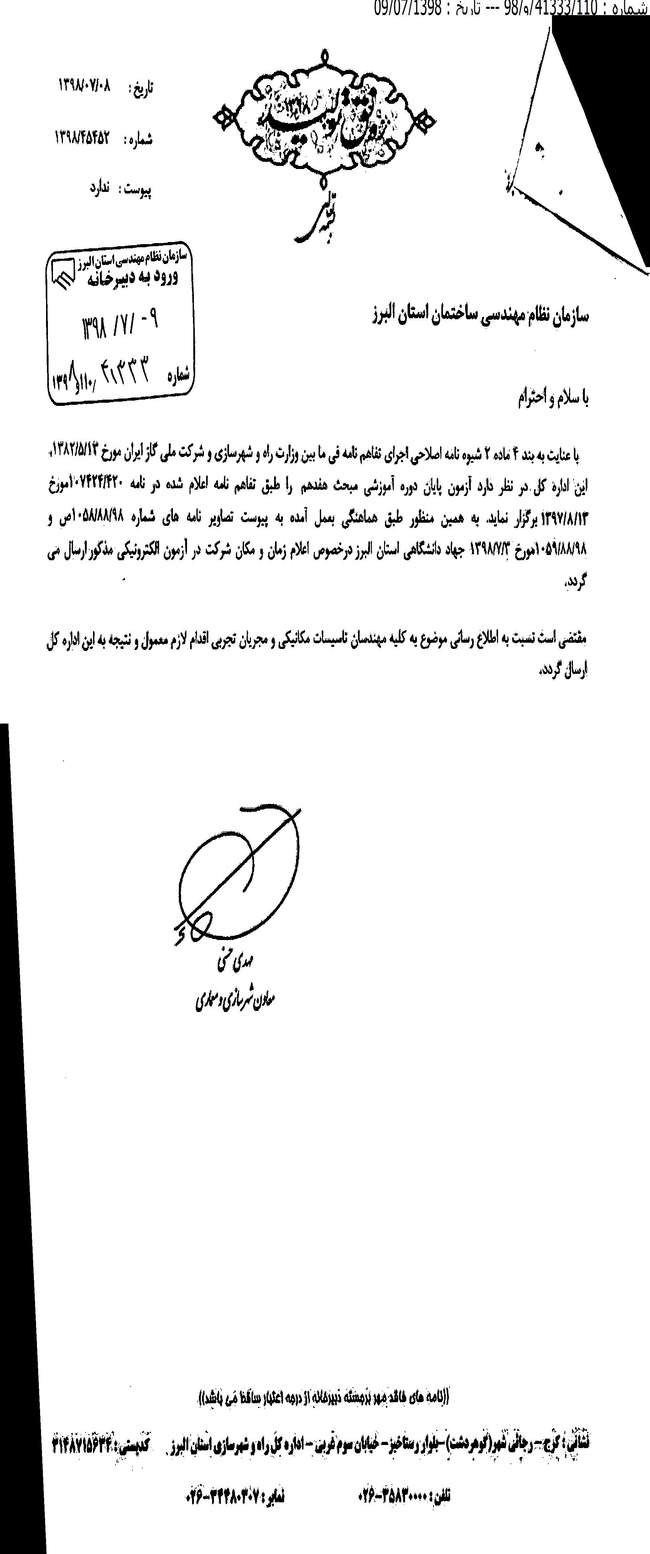 شماره : 98/و/41333/110 --- تاریخ : 09/07/1398
تاریخ : ۱۳۹۸/۰۷/۰۸
شماره : ۱۳۹۸/۴۵۴۵۲
پیوست : ندارد
رونق تولید
۱۳۹۸
بسمه تعالی
سازمان نظام مهندسی استان البرز
ورود به دبیرخانه
۱۳۹۸ /۷/ -۹
شماره ۴۱۳۳۳ /۱۱۰/و/۱۳۹۸
سازمان نظام مهندسی ساختمان استان البرز
با سلام و احترام
با عنایت به بند ۴ ماده ۲ شیوه نامه اصلاحی اجرای تفاهم نامه فی ما بین وزارت راه و شهرسازی و شرکت ملی گاز ایران مورخ ۱۳۸۲/۵/۱۳،
این اداره کل در نظر دارد آزمون پایان دوره آموزشی مبحث هفدهم را طبق تفاهم نامه اعلام شده در نامه ۱۰۷۴۲۴/۴۲۰مورخ
۱۳۹۷/۸/۱۳ برگزار نماید. به همین منظور طبق هماهنگی بعمل آمده به پیوست تصاویر نامه های شماره ۱۰۵۸/۸۸/۹۸ص و
۱۰۵۹/۸۸/۹۸مورخ ۱۳۹۸/۷/۳ جهاد دانشگاهی استان البرز درخصوص اعلام زمان و مکان شرکت در آزمون الکترونیکی مذکور ارسال می
گردد.
مقتضی است نسبت به اطلاع رسانی موضوع به کلیه مهندسان تاسیسات مکانیکی و مجریان تجربی اقدام لازم معمول و نتیجه به این اداره کل
ارسال گردد.
مهدی حسنی
معاون شهرسازی و معماری
((نامه های فاقد مهر برجسته دبیرخانه از درجه اعتبار ساقط می باشد))
نشانی : کرج – رجائی شهر(گوهردشت)–بلوار رستاخیز – خیابان سوم غربی – اداره کل راه و شهرسازی استان البرز کدپستی : ۳۱۴۸۷۱۵۶۳۴
تلفن : ۳۵۸۳۰۰۰۰–۰۲۶ نمابر : ۳۴۴۸۰۳۰۷–۰۲۶